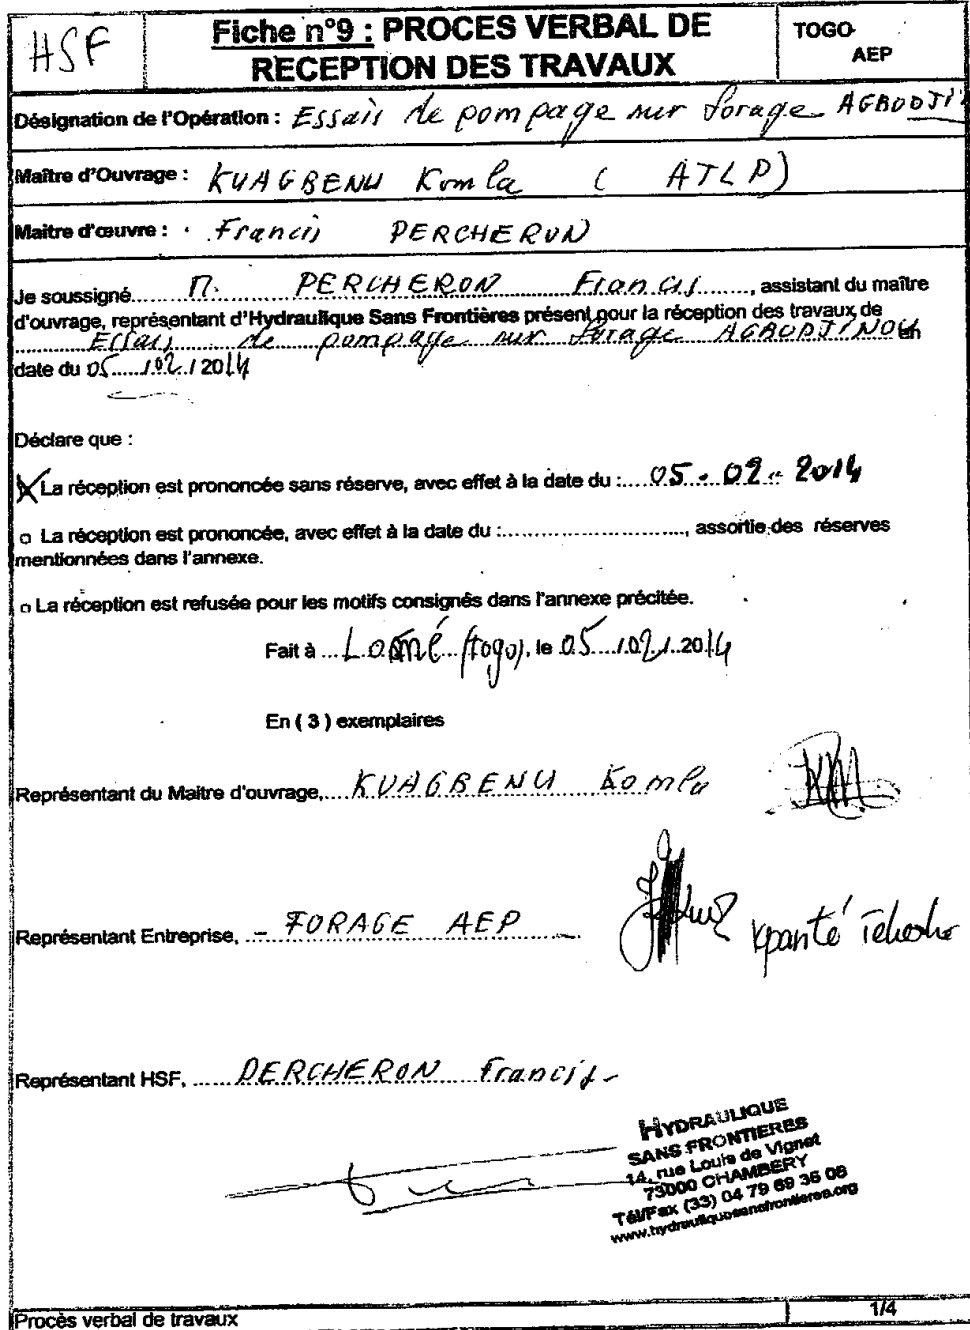 HSF
Fiche n°9 : PROCES VERBAL DE
RECEPTION DES TRAVAUX
TOGO
AEP
Désignation de l'Opération : Essais de pompage sur forage AGBODJI
Maître d'Ouvrage : KUAGBENU Komla ( ATLP)
Maitre d'œuvre : Francis PERCHERON
Je soussigné........M. PERCHERON Francis........, assistant du maître
d'ouvrage, représentant d'Hydraulique Sans Frontières présent pour la réception des travaux de
Essais de pompage sur forage AGBODJINOU en
date du 05 / 02 / 2014
Déclare que :
X La réception est prononcée sans réserve, avec effet à la date du :.... 05 - 02 - 2014
o La réception est prononcée, avec effet à la date du :........................., assortie des réserves
mentionnées dans l'annexe.
o La réception est refusée pour les motifs consignés dans l'annexe précitée.
Fait à ... Lomé (togo), le 05 / 02 / 2014
En ( 3 ) exemplaires
Représentant du Maitre d'ouvrage,.... KUAGBENU Komla
Représentant Entreprise, ... - FORAGE AEP -
Kpanté
Représentant HSF, ...... PERCHERON Francis -
HYDRAULIQUE
SANS FRONTIERES
14, rue Louis de Vignet
73000 CHAMBERY
Tél/Fax (33) 04 79 69 35 08
www.hydrauliquesansfrontieres.org
Procès verbal de travaux
1/4